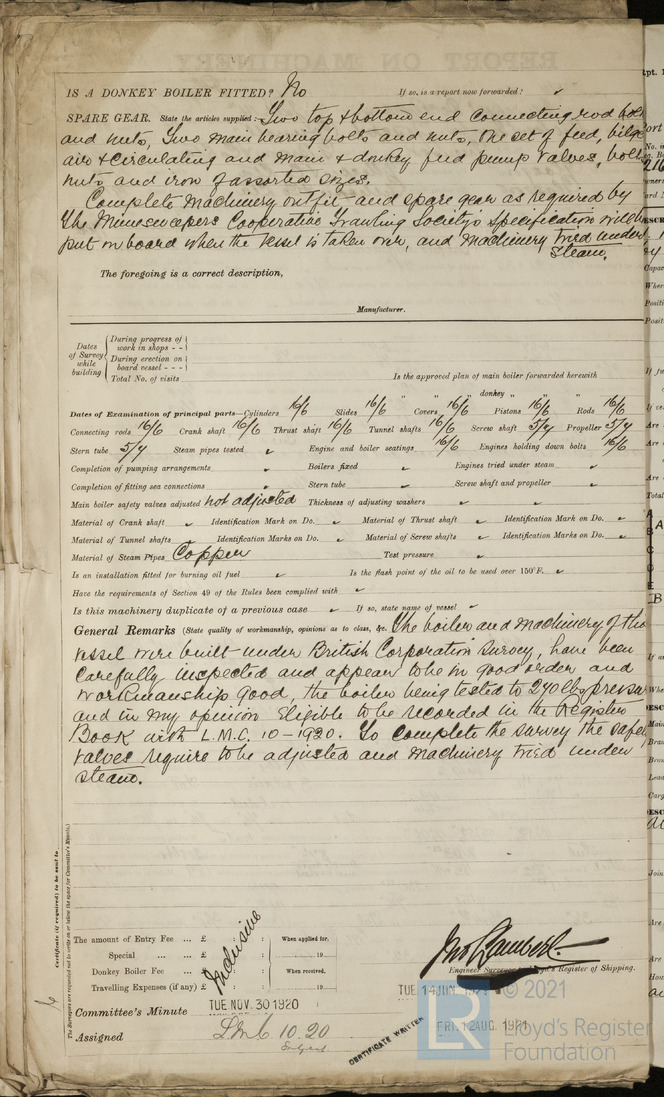 IS A DONKEY BOILER FITTED? No If so, is a report now forwarded? ✓
SPARE GEAR. State the articles supplied:- Two top & bottom end connecting rod bolts
and nuts, Two main bearing bolts and nuts, One set of feed, bilge
air & circulating and main & donkey feed pump valves, bolts
nuts and iron of assorted sizes.
Complete machinery outfit and spare gear as required by
The Minesweepers Cooperative Trawling Society's Specification will be
put on board when the vessel is taken over, and machinery tried under
steam.
The foregoing is a correct description,
Manufacturer.
Dates of Survey while building
During progress of work in shops - -
During erection on board vessel - - -
Total No. of visits
Is the approved plan of main boiler forwarded herewith
" " donkey " "
Dates of Examination of principal parts—Cylinders 16/6 Slides 16/6 Covers 16/6 Pistons 16/6 Rods 16/6
Connecting rods 16/6 Crank shaft 16/6 Thrust shaft 16/6 Tunnel shafts 16/6 Screw shaft 5/4 Propeller 5/4
Stern tube 5/4 Steam pipes tested ✓ Engine and boiler seatings 16/6 Engines holding down bolts 16/6
Completion of pumping arrangements ✓ Boilers fixed ✓ Engines tried under steam ✓
Completion of fitting sea connections ✓ Stern tube ✓ Screw shaft and propeller ✓
Main boiler safety valves adjusted not adjusted Thickness of adjusting washers ✓
Material of Crank shaft ✓ Identification Mark on Do. ✓ Material of Thrust shaft ✓ Identification Mark on Do. ✓
Material of Tunnel shafts ✓ Identification Marks on Do. ✓ Material of Screw shafts ✓ Identification Marks on Do. ✓
Material of Steam Pipes Copper Test pressure ✓
Is an installation fitted for burning oil fuel ✓ Is the flash point of the oil to be used over 150°F. ✓
Have the requirements of Section 49 of the Rules been complied with ✓
Is this machinery duplicate of a previous case ✓ If so, state name of vessel ✓
General Remarks (State quality of workmanship, opinions as to class, &c. The boiler and machinery of this
vessel were built under British Corporation Survey, have been
carefully inspected and appear to be in good order and
workmanship good, the boiler being tested to 240 lbs pressure
and in my opinion eligible to be recorded in the Register
Book with L.M.C. 10-1920. To complete the survey the safety
valves require to be adjusted and machinery tried under
steam.
Certificate (if required) to be sent to
The Surveyors are requested not to write on or below the space for Committee's Minute.)
The amount of Entry Fee ... £ : : When applied for,
Special ... ... £ : : 19
Donkey Boiler Fee ... £ : : When received,
Travelling Expenses (if any) £ : : 19
Inclusive
Jno Lambert.
Engineer Surveyor to Lloyd's Register of Shipping.
Committee's Minute TUE. NOV. 30 1920 TUE. 14 JUN. 1921
Assigned LMC 10.20 FRI. 12 AUG. 1921
Subject
CERTIFICATE WRITTEN
© 2021
LR
Lloyd's Register
Foundation